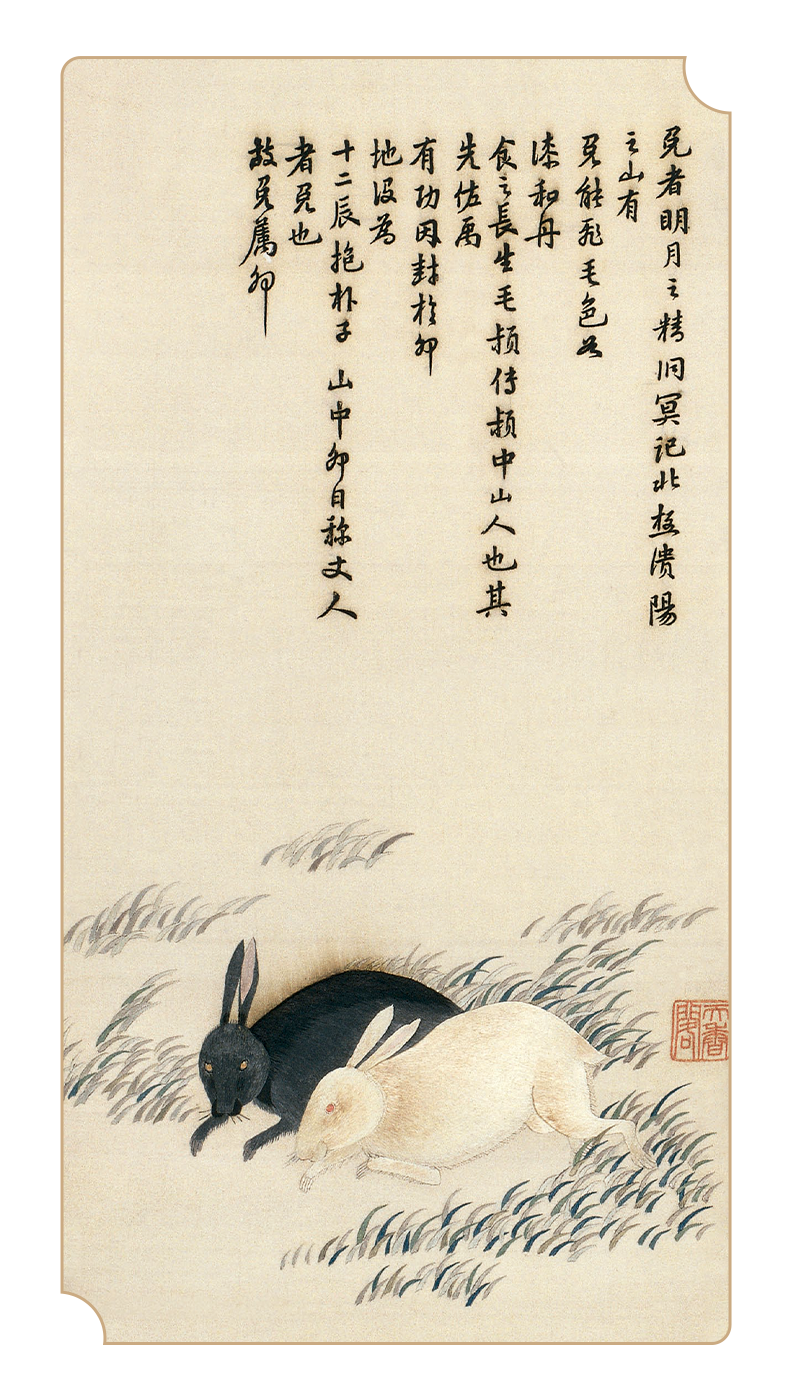 兎者明月之精洞冥記北極潰陽
之山有
兎能飛毛色如
漆和丹
食之長生毛頴傳頴中山人也其
先佐禹
有功因封於卯
地沒為
十二辰抱朴子 山中卯日称丈人
者兎也
故兎属卯
天香閣